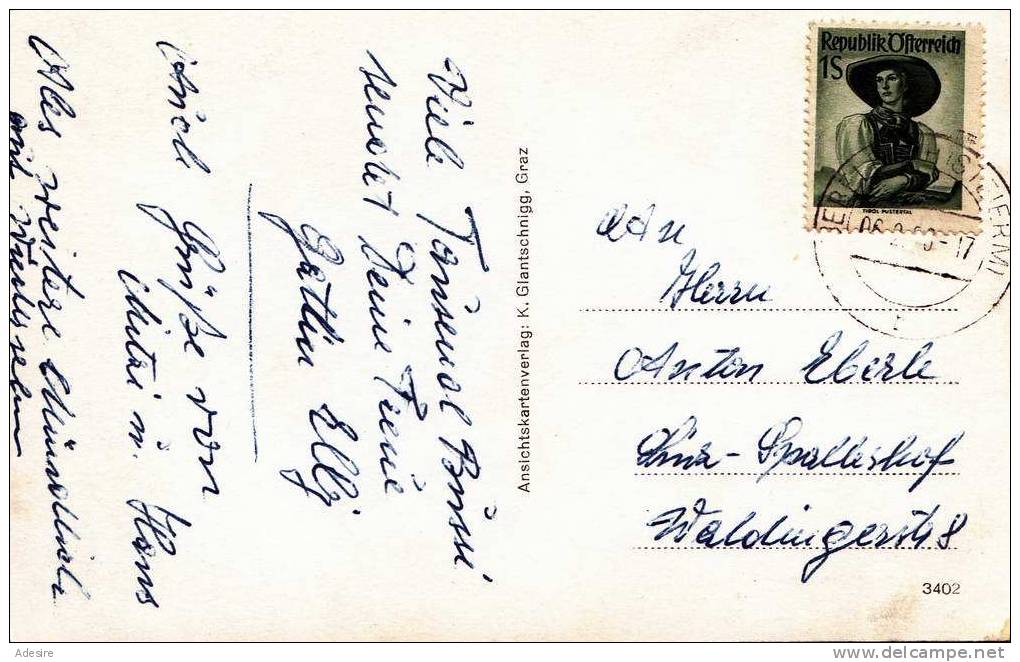 Viele Tausend Bussi
sendet Deine Treue
Gattin Elly
Auch Grüße von
Mitzi u. Hans
Alles weitere Mündlich
auf Wiedersehen
Ansichtskartenverlag: K. Glantschnigg, Graz
Republik Österreich
1S
TIROL PUSTERTAL
An
Herrn
Anton Eberle
Linz-Spallerhof
Waldingerstr 8
3402
Adesire
www.delcampe.net